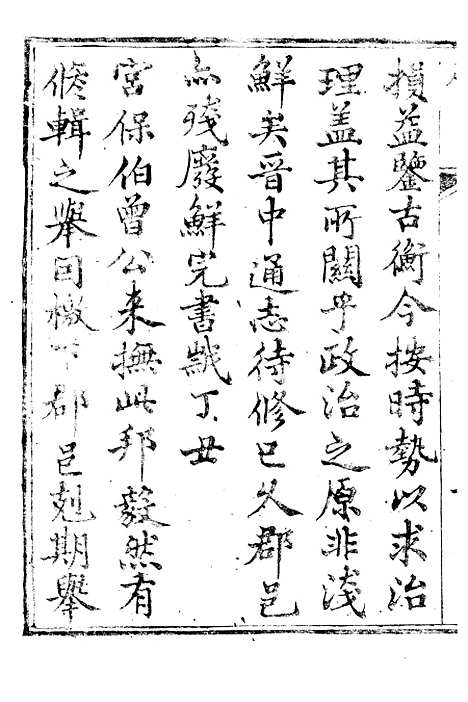 損益鑒古衡今按時勢以求治
理盖其所關乎政治之原非淺
鮮矣晉中通志待修已久郡邑
無殘廢鮮完書歲丁丑
宮保伯曾公来撫此邦毅然有
修輯之舉因檄下郡邑剋期舉